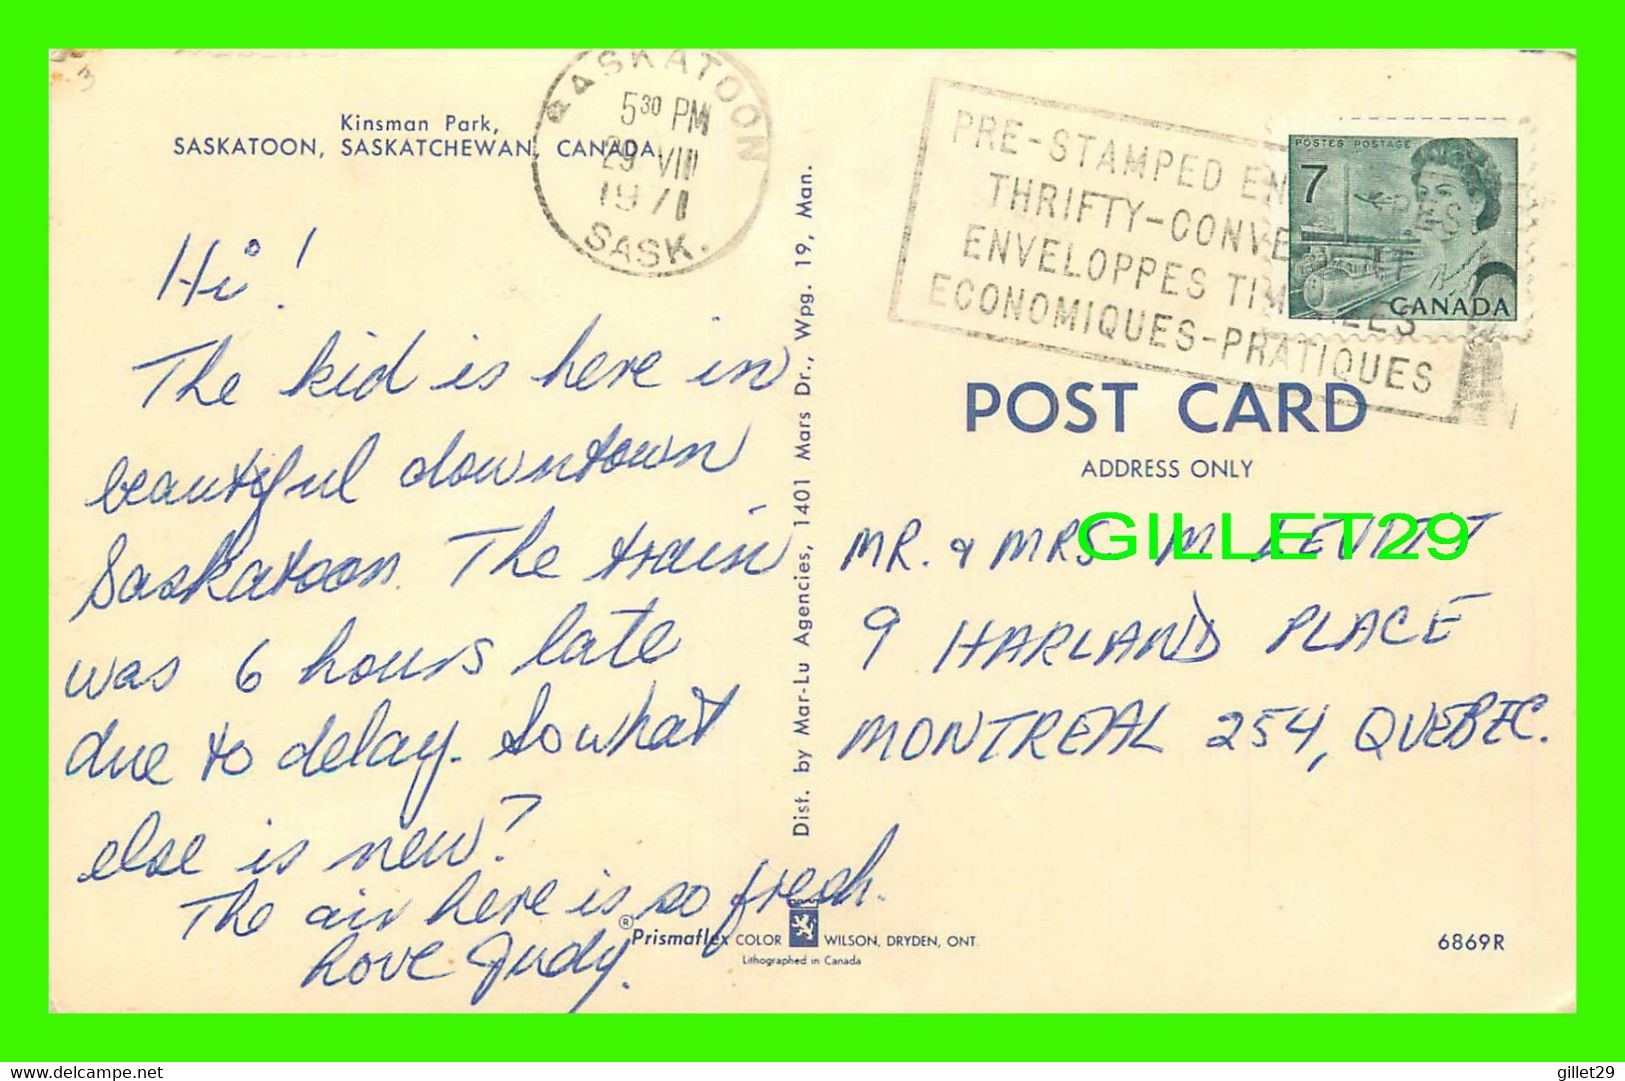 3
Kinsman Park,
SASKATOON, SASKATCHEWAN, CANADA
SASKATOON
5 30 PM
29 VIII
1971
SASK.
PRE-STAMPED EN
THRIFTY-CONVE
ENVELOPPES TIM
ECONOMIQUES-PRATIQUES
POSTES POSTAGE
7
CANADA
Hi!
The kid is here in
beautiful downtown
Saskatoon. The train
was 6 hours late
due to delay. So what
else is new?
The air here is so fresh.
Love Judy.
Dist. by Mar-Lu Agencies, 1401 Mars Dr., Wpg. 19, Man.
POST CARD
ADDRESS ONLY
GILLET29
MR. & MRS. M LEVITT
9 HARLAND PLACE
MONTREAL 254, QUEBEC.
®Prismaflex COLOR WILSON, DRYDEN, ONT.
Lithographed in Canada
6869R
gillet29